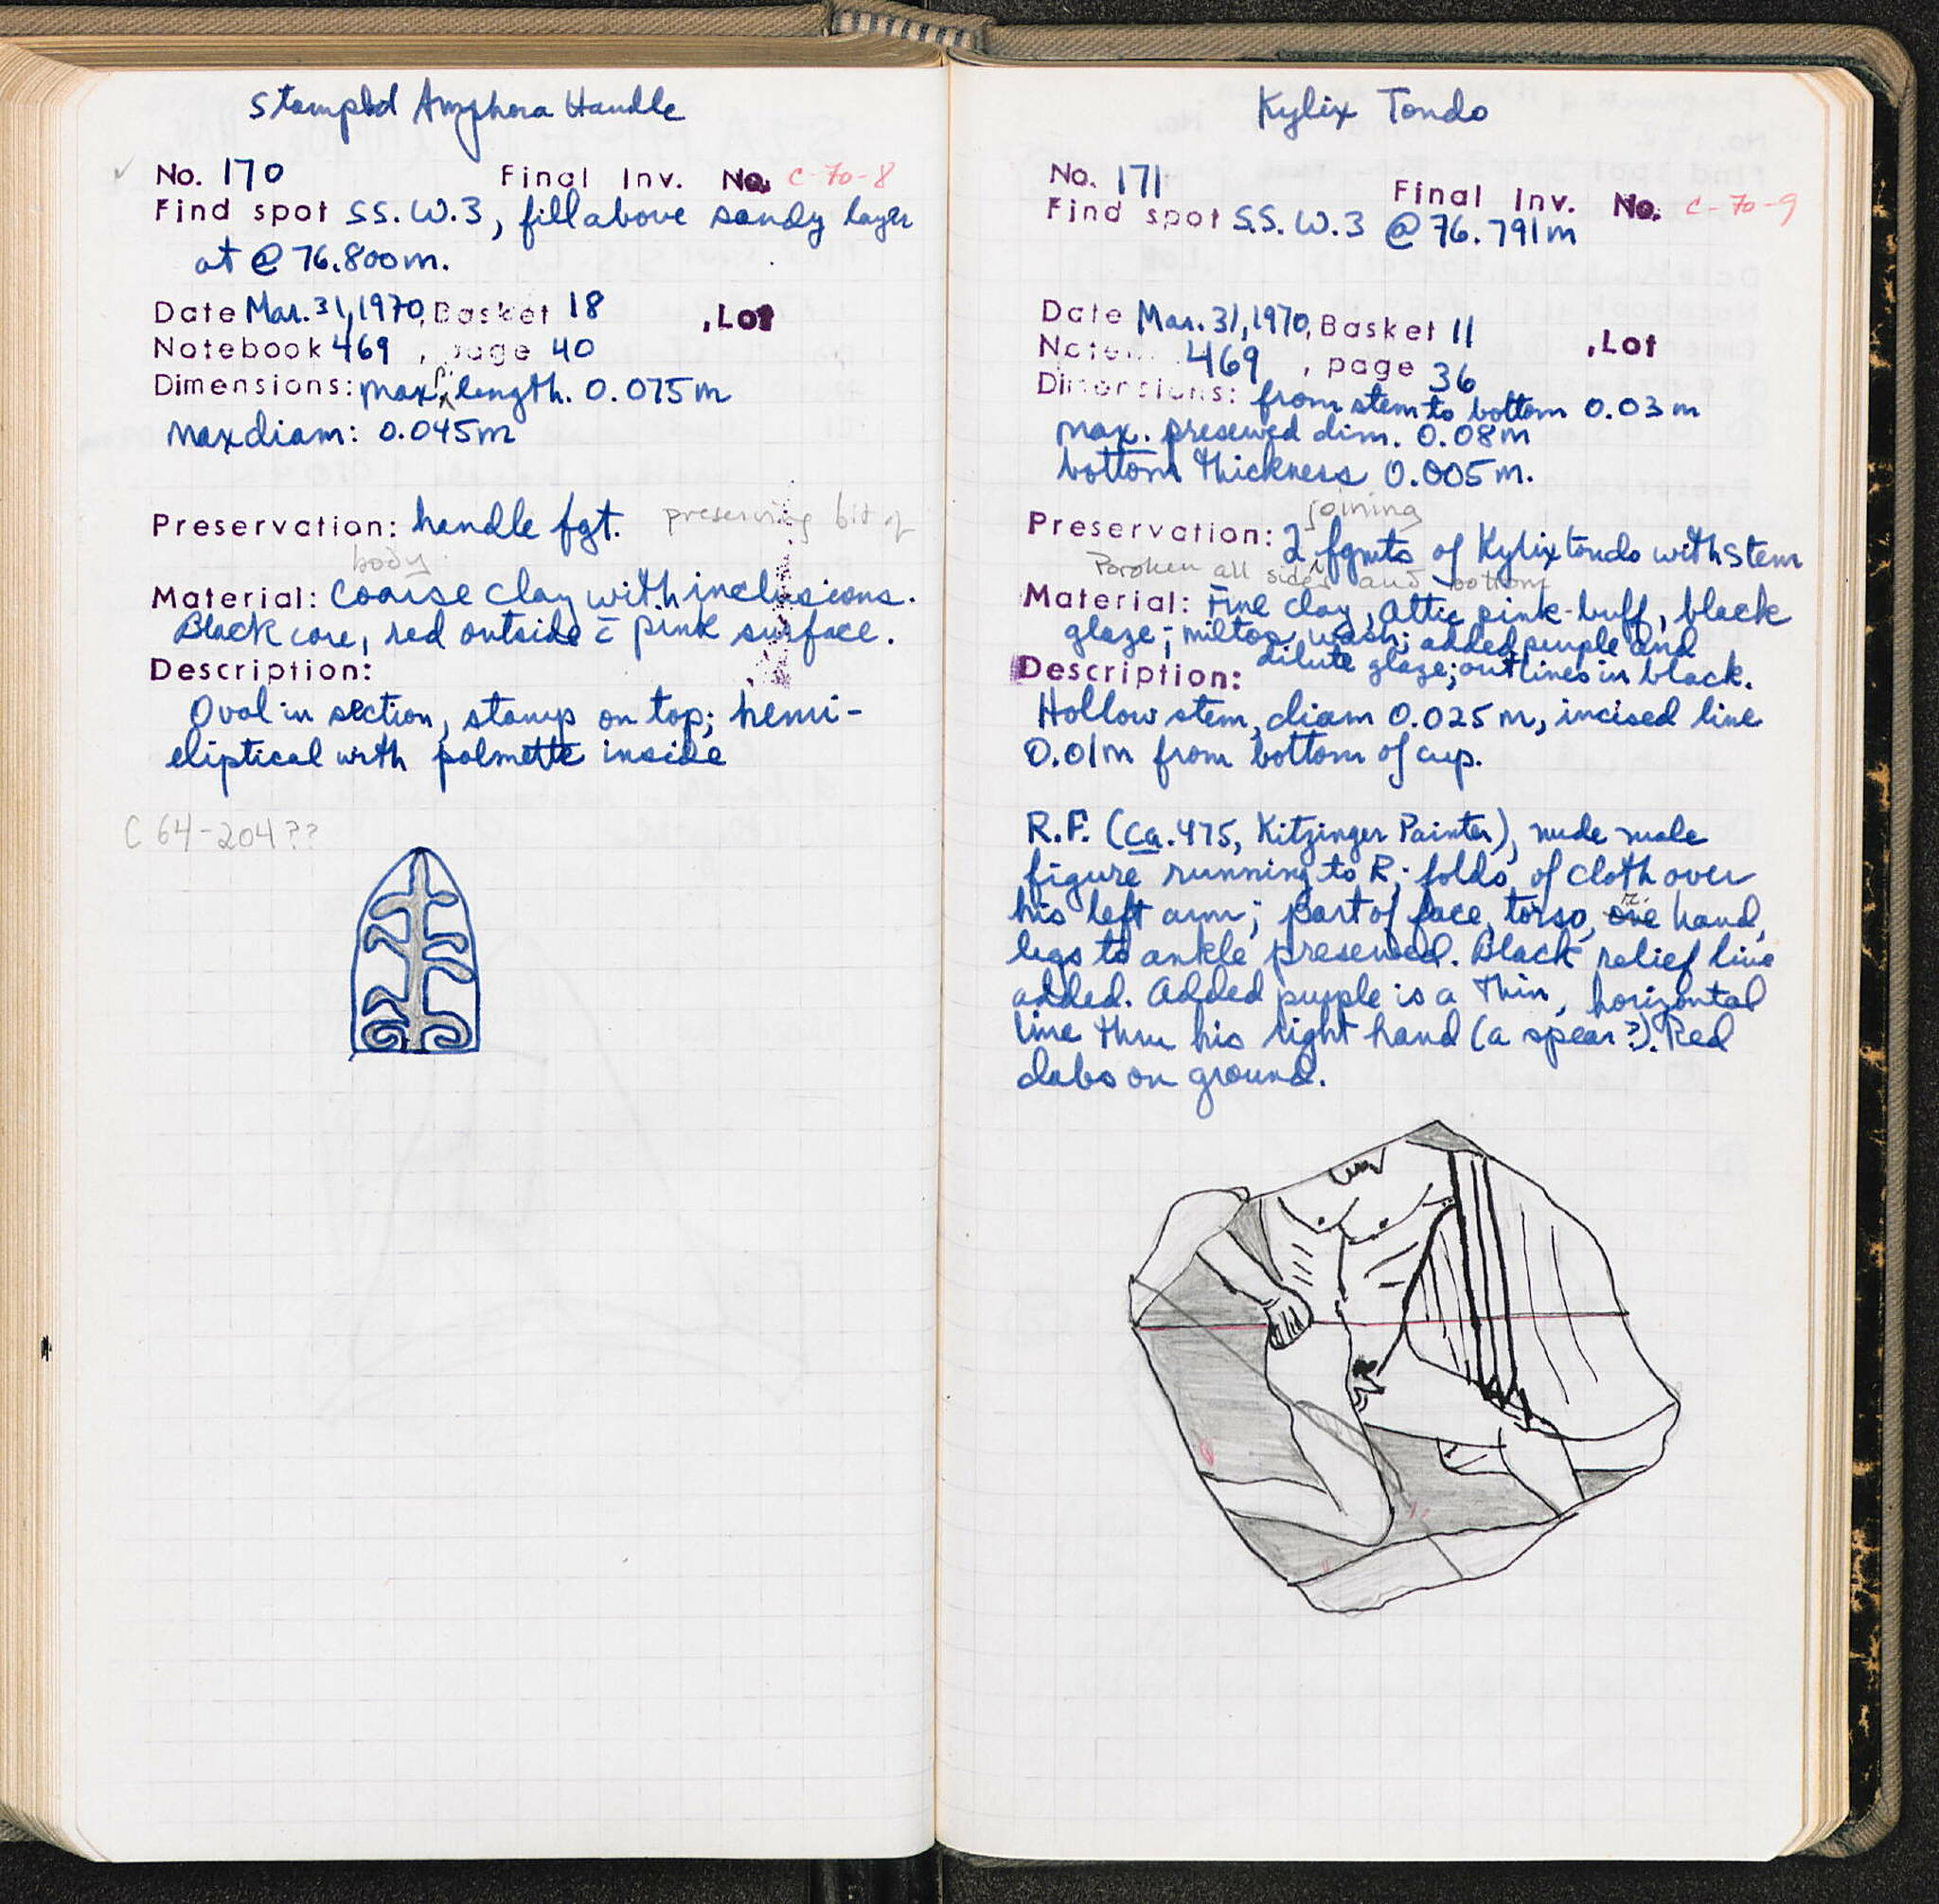 Stamped Amphora Handle
✓ No. 170 Final Inv. No. C-70-8
Find spot S.S. W.3, fill above sandy layer
at @ 76.800m.
Date Mar. 31, 1970, Basket 18 , Lot
Notebook 469 , page 40
Dimensions: max p. length. 0.075m
Max diam: 0.045m
Preservation: handle fgt. preserving bit of
body.
Material: Coarse clay with inclusions.
Black core, red outside c̄ pink surface.
Description:
Oval in section, stamp on top; hemi-
eliptical with palmette inside
C 64-204??
Kylix Tondo
No. 171 Final Inv. No. C-70-9
Find spot S.S. W.3 @ 76.791m
Date Mar. 31, 1970, Basket 11 , Lot
Note 469 , page 36
Dimensions: from stem to bottom 0.03m
max. preserved dim. 0.08m
bottom thickness 0.005m.
joining
Preservation: 2 fgmts of Kylix tondo with stem
Broken all sides and bottom
Material: Fine clay, Attic pink-buff, black
glaze; miltos wash; added purple and
dilute glaze; outlines in black.
Description:
Hollow stem, diam 0.025m, incised line
0.01m from bottom of cup.
R.F. (ca. 475, Kitzinger Painter), nude male
figure running to R; folds of cloth over
his left arm; part of face, torso, one hand,
legs to ankle preserved. Black relief line
added. Added purple is a thin, horizontal
line thru his right hand (a spear?). Red
dabs on ground.